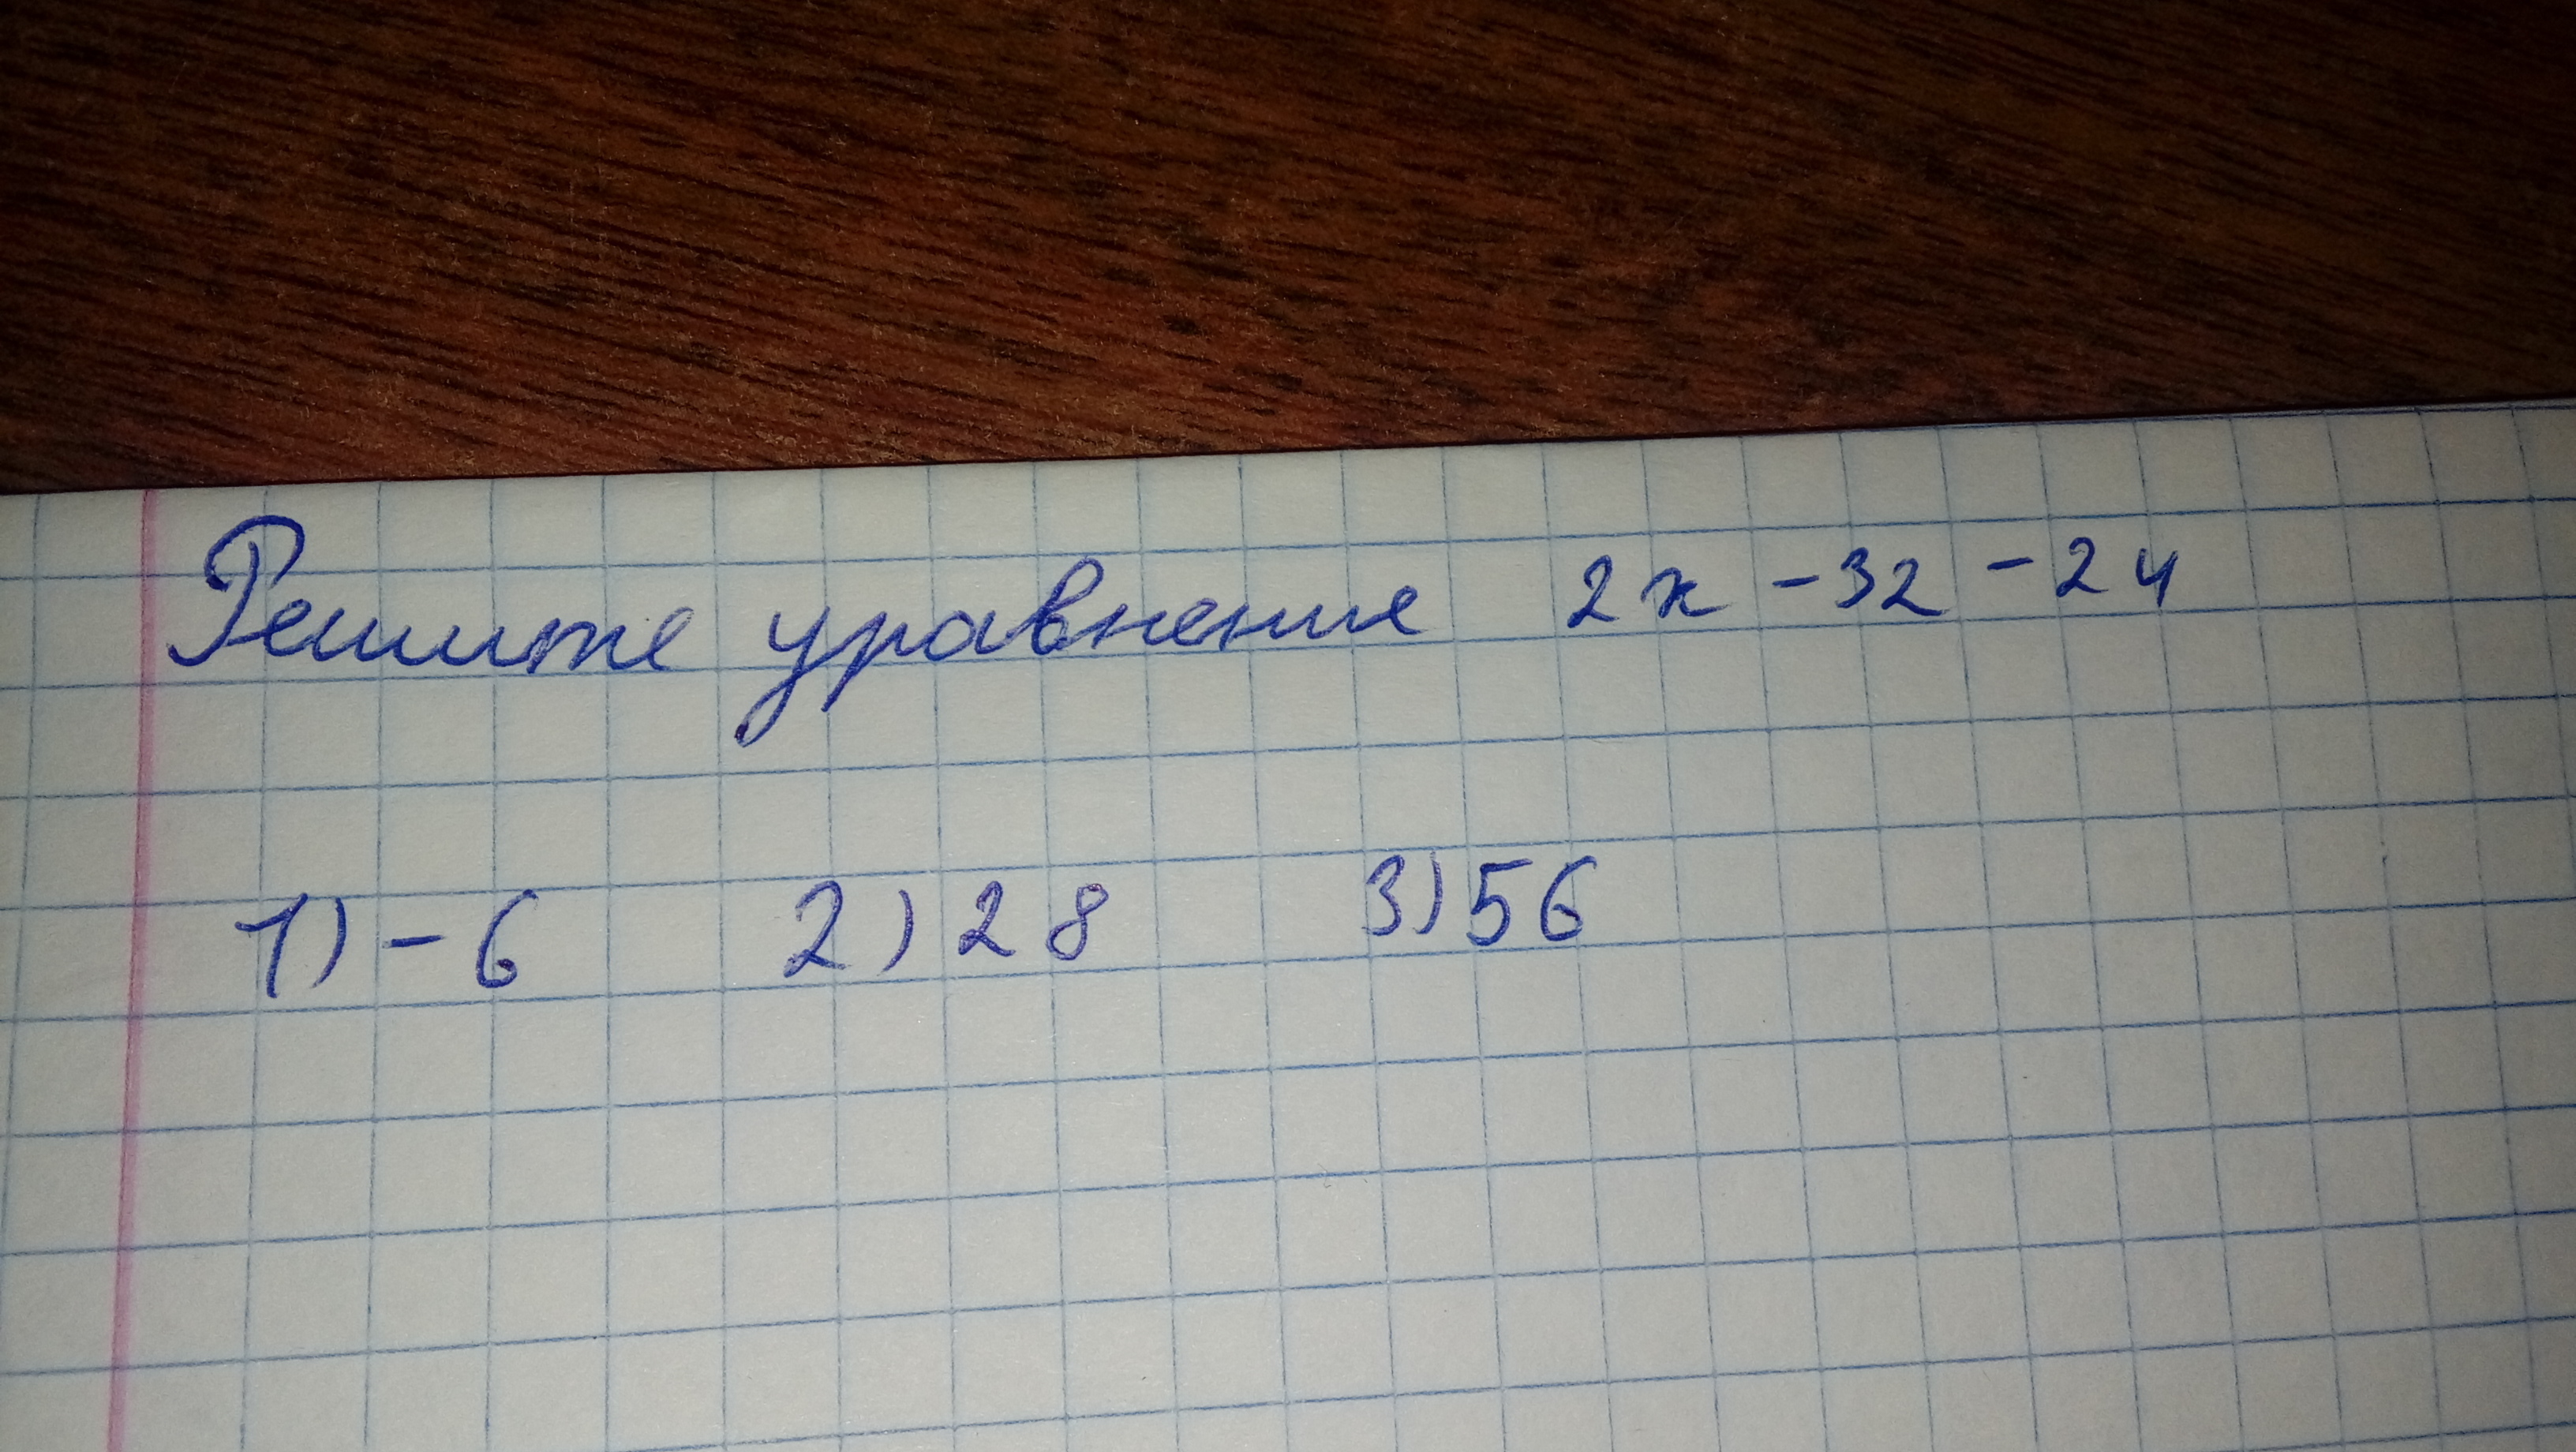 Решите уравнение 2x - 32 - 24
1) - 6 2) 28 3) 56